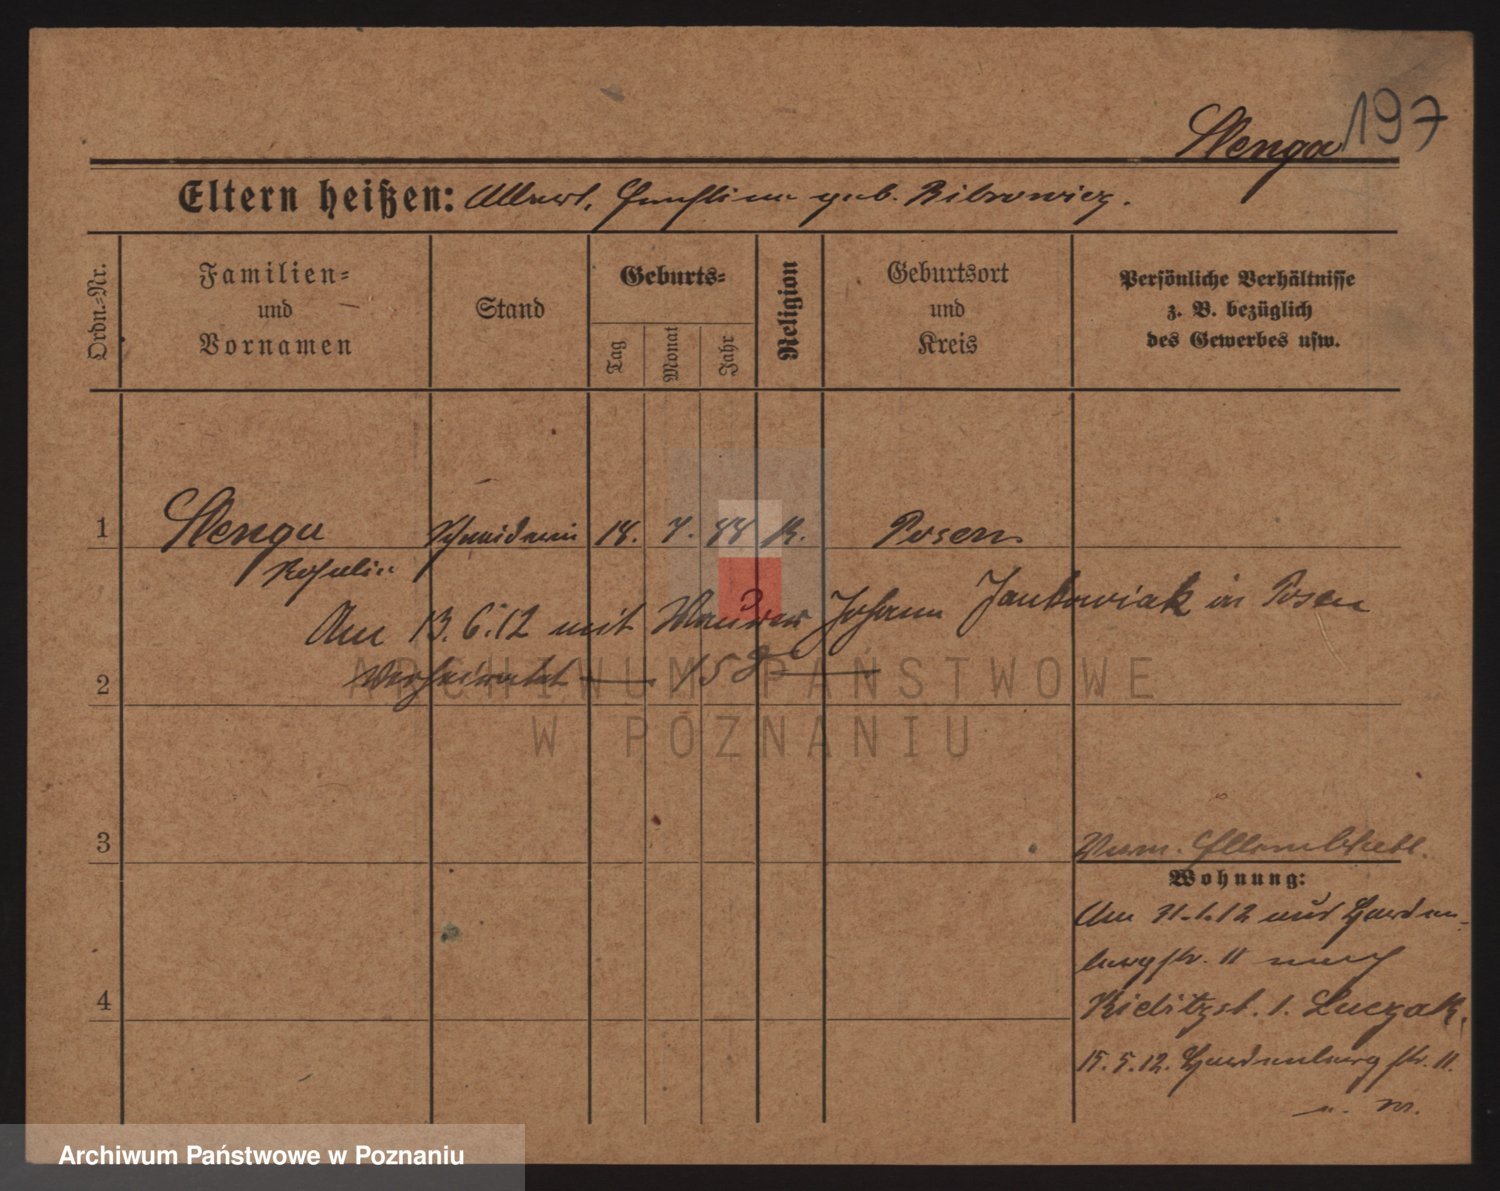 197
Slenga
Eltern heißen: Albert, geb. Bibrowicz.
Ordn.-Nr.
Familien-
und
Vornamen
Stand
Geburts-
Tag
Monat
Jahr
Religion
Geburtsort
und
Kreis
Persönliche Verhältnisse
z. B. bezüglich
des Gewerbes usw.
1
Slenga
Schneiderin
18. 7. 88
K.
Posen
Rosalie
Am 13.6.12 mit Maurer Johann Jankowiak in Posen
2
Verheiratet
3
Wohnung:
Am 31.1.12 aus Harden-
bergstr. 11 nach
4
1. Luczak.
15.5.12. Hardenbergstr. 11.
ARCHIWUM PAŃSTWOWE
W POZNANIU
Archiwum Państwowe w Poznaniu